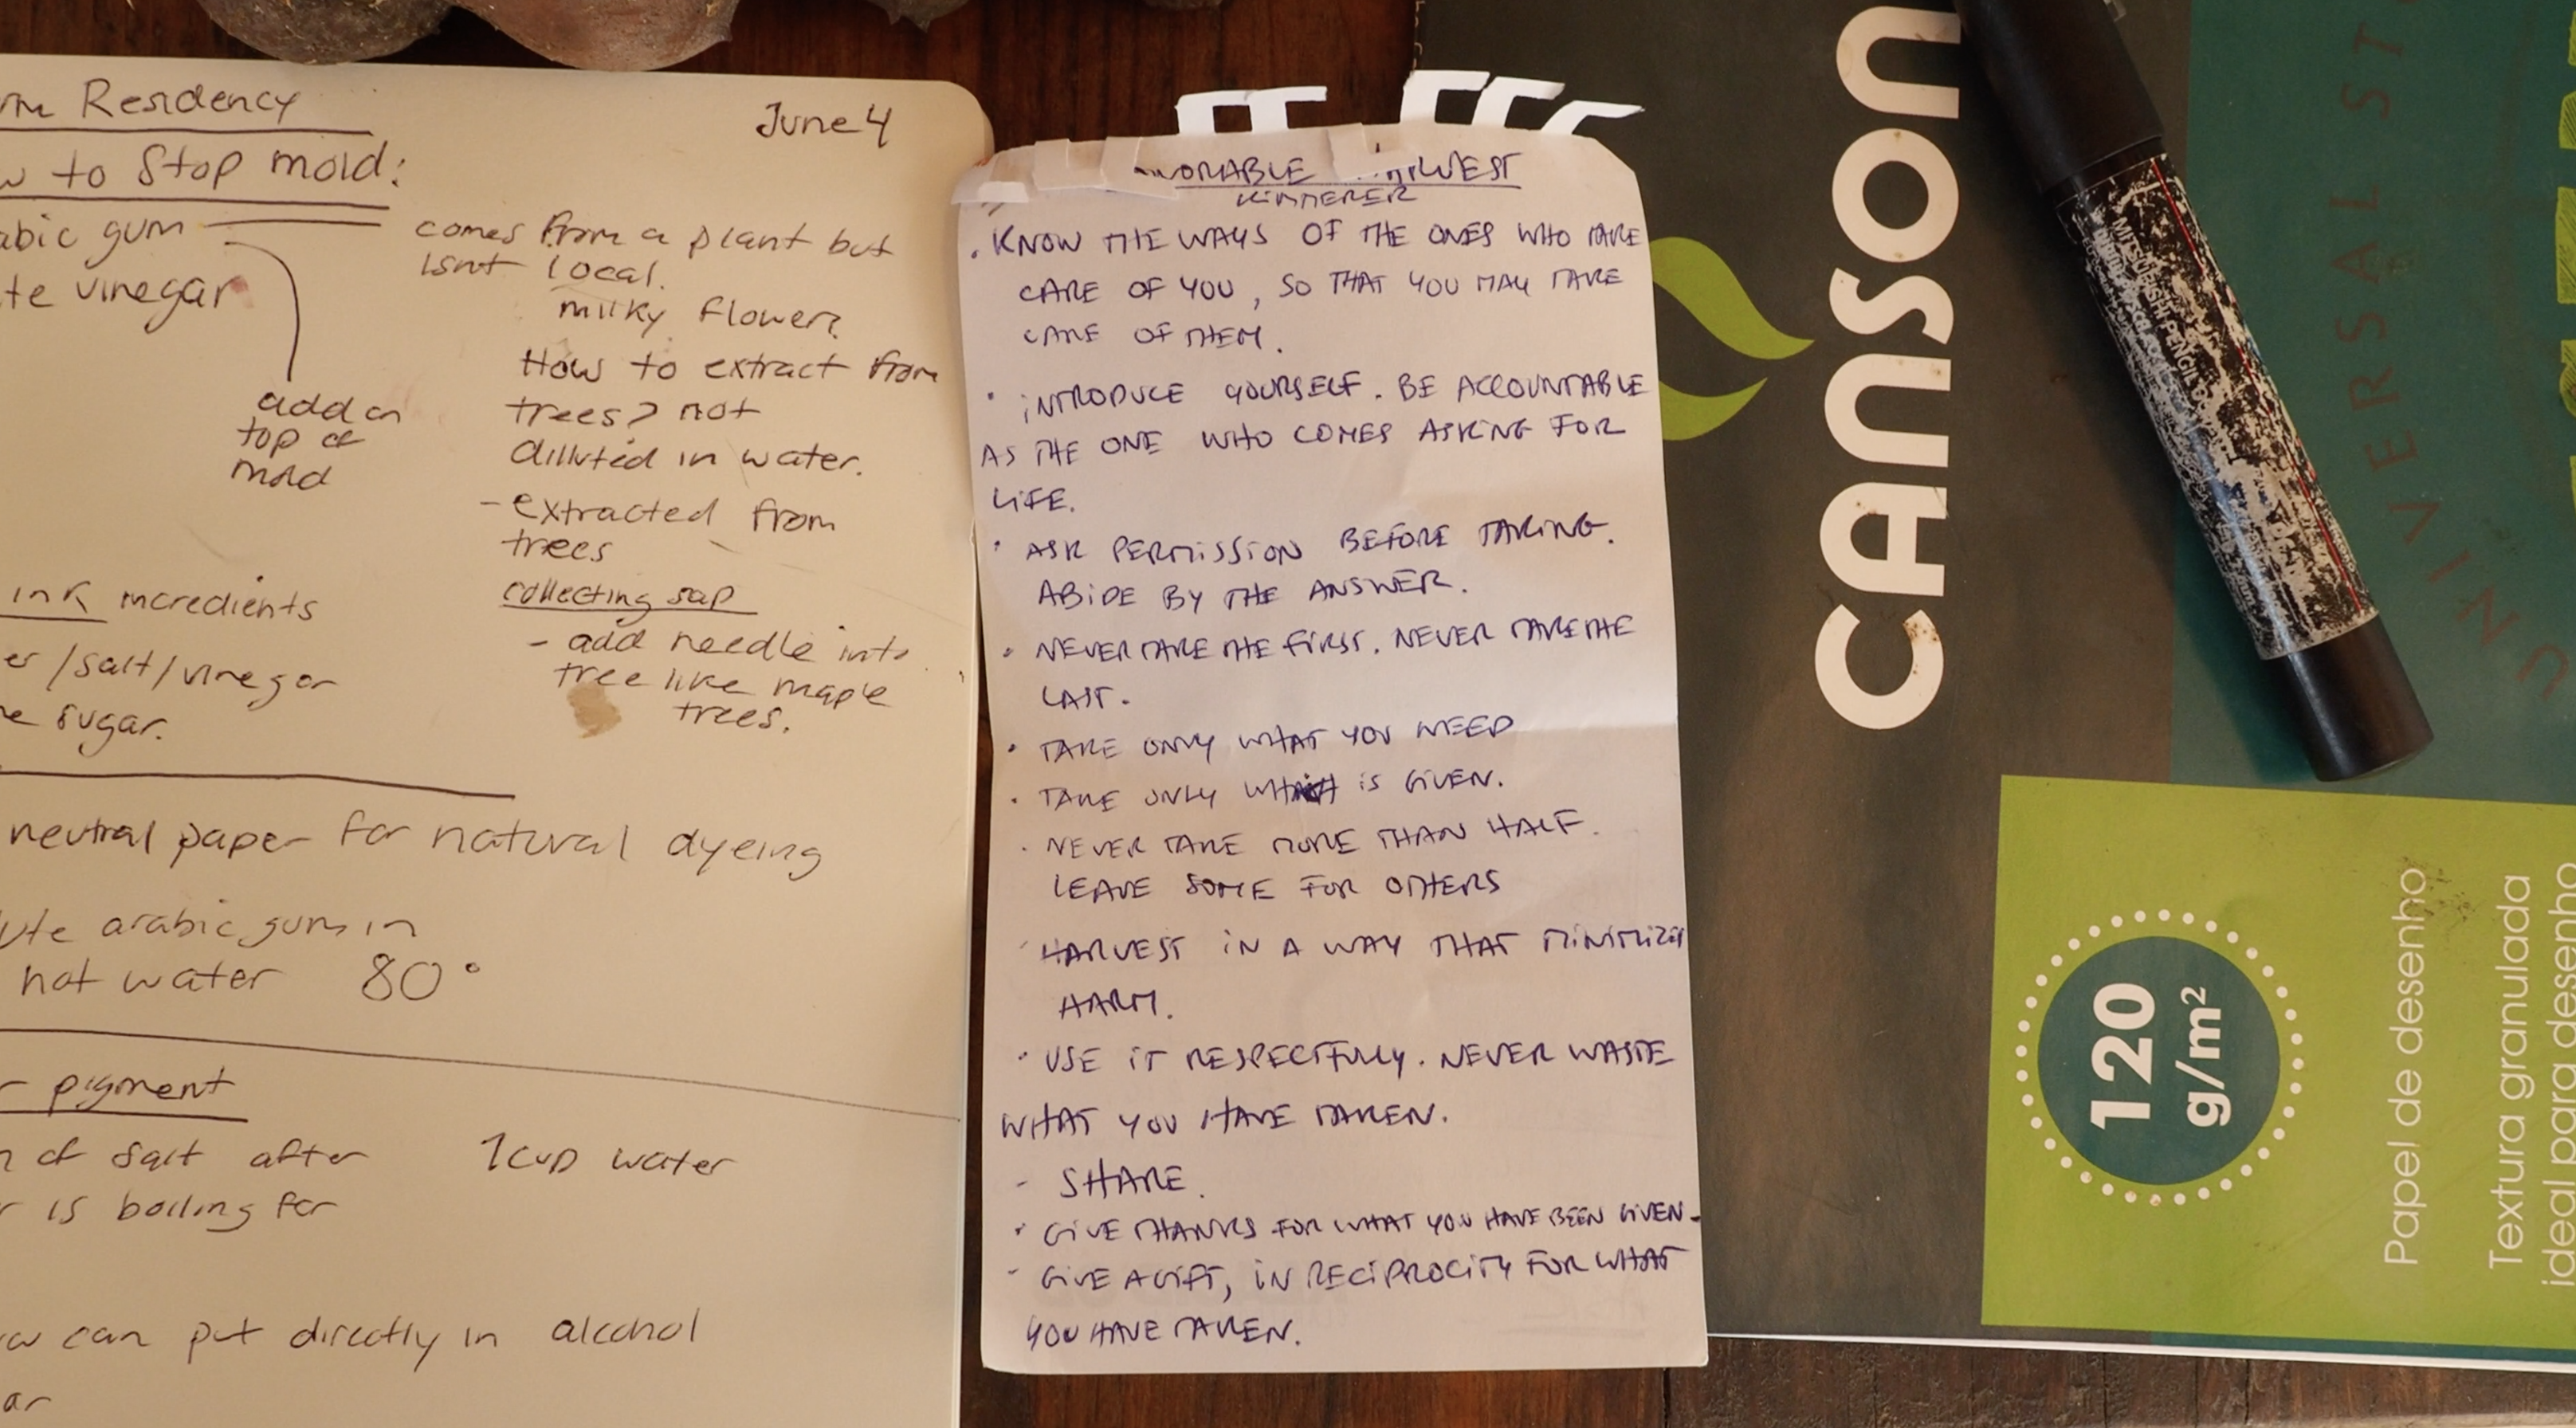 Residency
June 4
to Stop mold:
gum
comes from a plant but
isnt local.
vinegar
milky flower?
How to extract from
trees? not
dilluted in water.
add on
top of
mold
- extracted from
trees
collecting sap
- add needle into
tree like maple
trees.
ink incredients
/salt/vinegar
sugar.
neutral paper for natural dyeing
arabic gum in
hot water 80°
pigment
of salt after 1 cup water
is boiling for
can put directly in alcohol
KIMMERER
· KNOW THE WAYS OF THE ONES WHO TAKE
CARE OF YOU, SO THAT YOU MAY TAKE
CARE OF THEM.
· INTRODUCE YOURSELF. BE ACCOUNTABLE
AS THE ONE WHO COMES ASKING FOR
LIFE.
· ASK PERMISSION BEFORE TAKING.
ABIDE BY THE ANSWER.
· NEVER TAKE THE FIRST. NEVER TAKE THE
LAST.
· TAKE ONLY WHAT YOU NEED
· TAKE ONLY WHAT IS GIVEN.
· NEVER TAKE MORE THAN HALF.
LEAVE SOME FOR OTHERS
HARVEST IN A WAY THAT MINIMIZES
HARM.
· USE IT RESPECTFULLY. NEVER WASTE
WHAT YOU HAVE TAKEN.
- SHARE.
· GIVE THANKS FOR WHAT YOU HAVE BEEN GIVEN.
- GIVE A GIFT, IN RECIPROCITY FOR WHAT
YOU HAVE TAKEN.
CANSON
UNIVERSAL
120
g/m²
Papel de desenho
Textura granulada
ideal para desenho
MITSUBISHI PENCIL